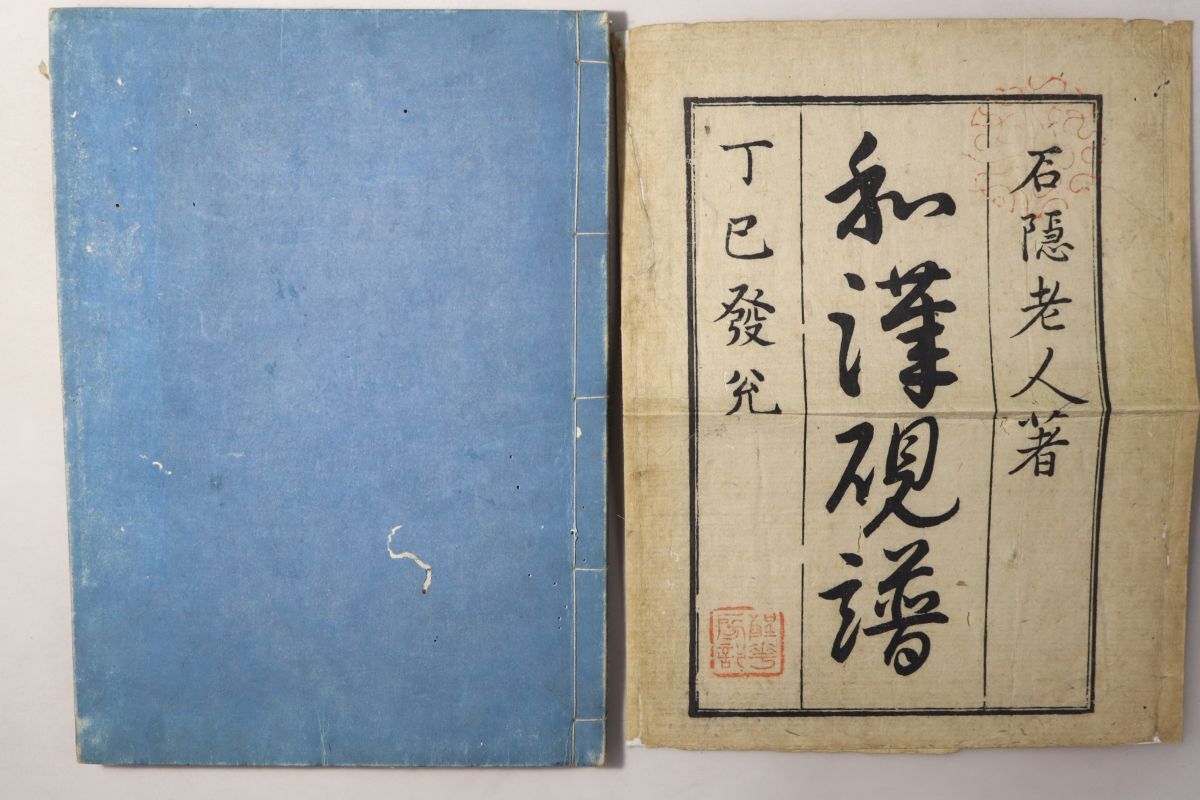 石隱老人著
和漢硯譜
丁巳發兊